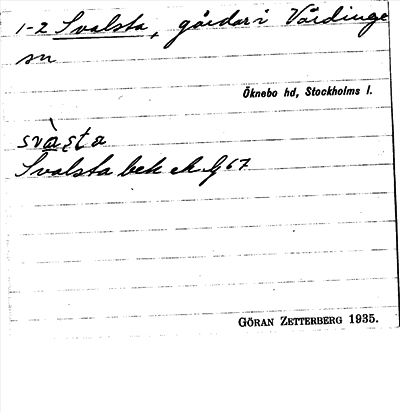 1-2 Svalsta, gårdar i Vårdinge
sn
Öknebo hd, Stockholms l.
svàsta
Svalsta bek ek bl 67
GÖRAN ZETTERBERG 1935.